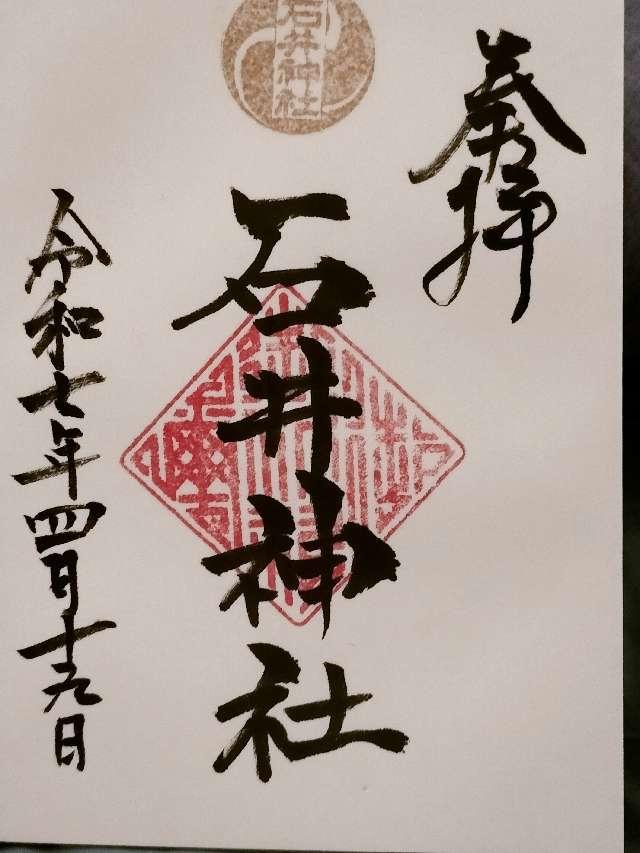 奉拝
石井神社
石井神社
令和七年四月十九日